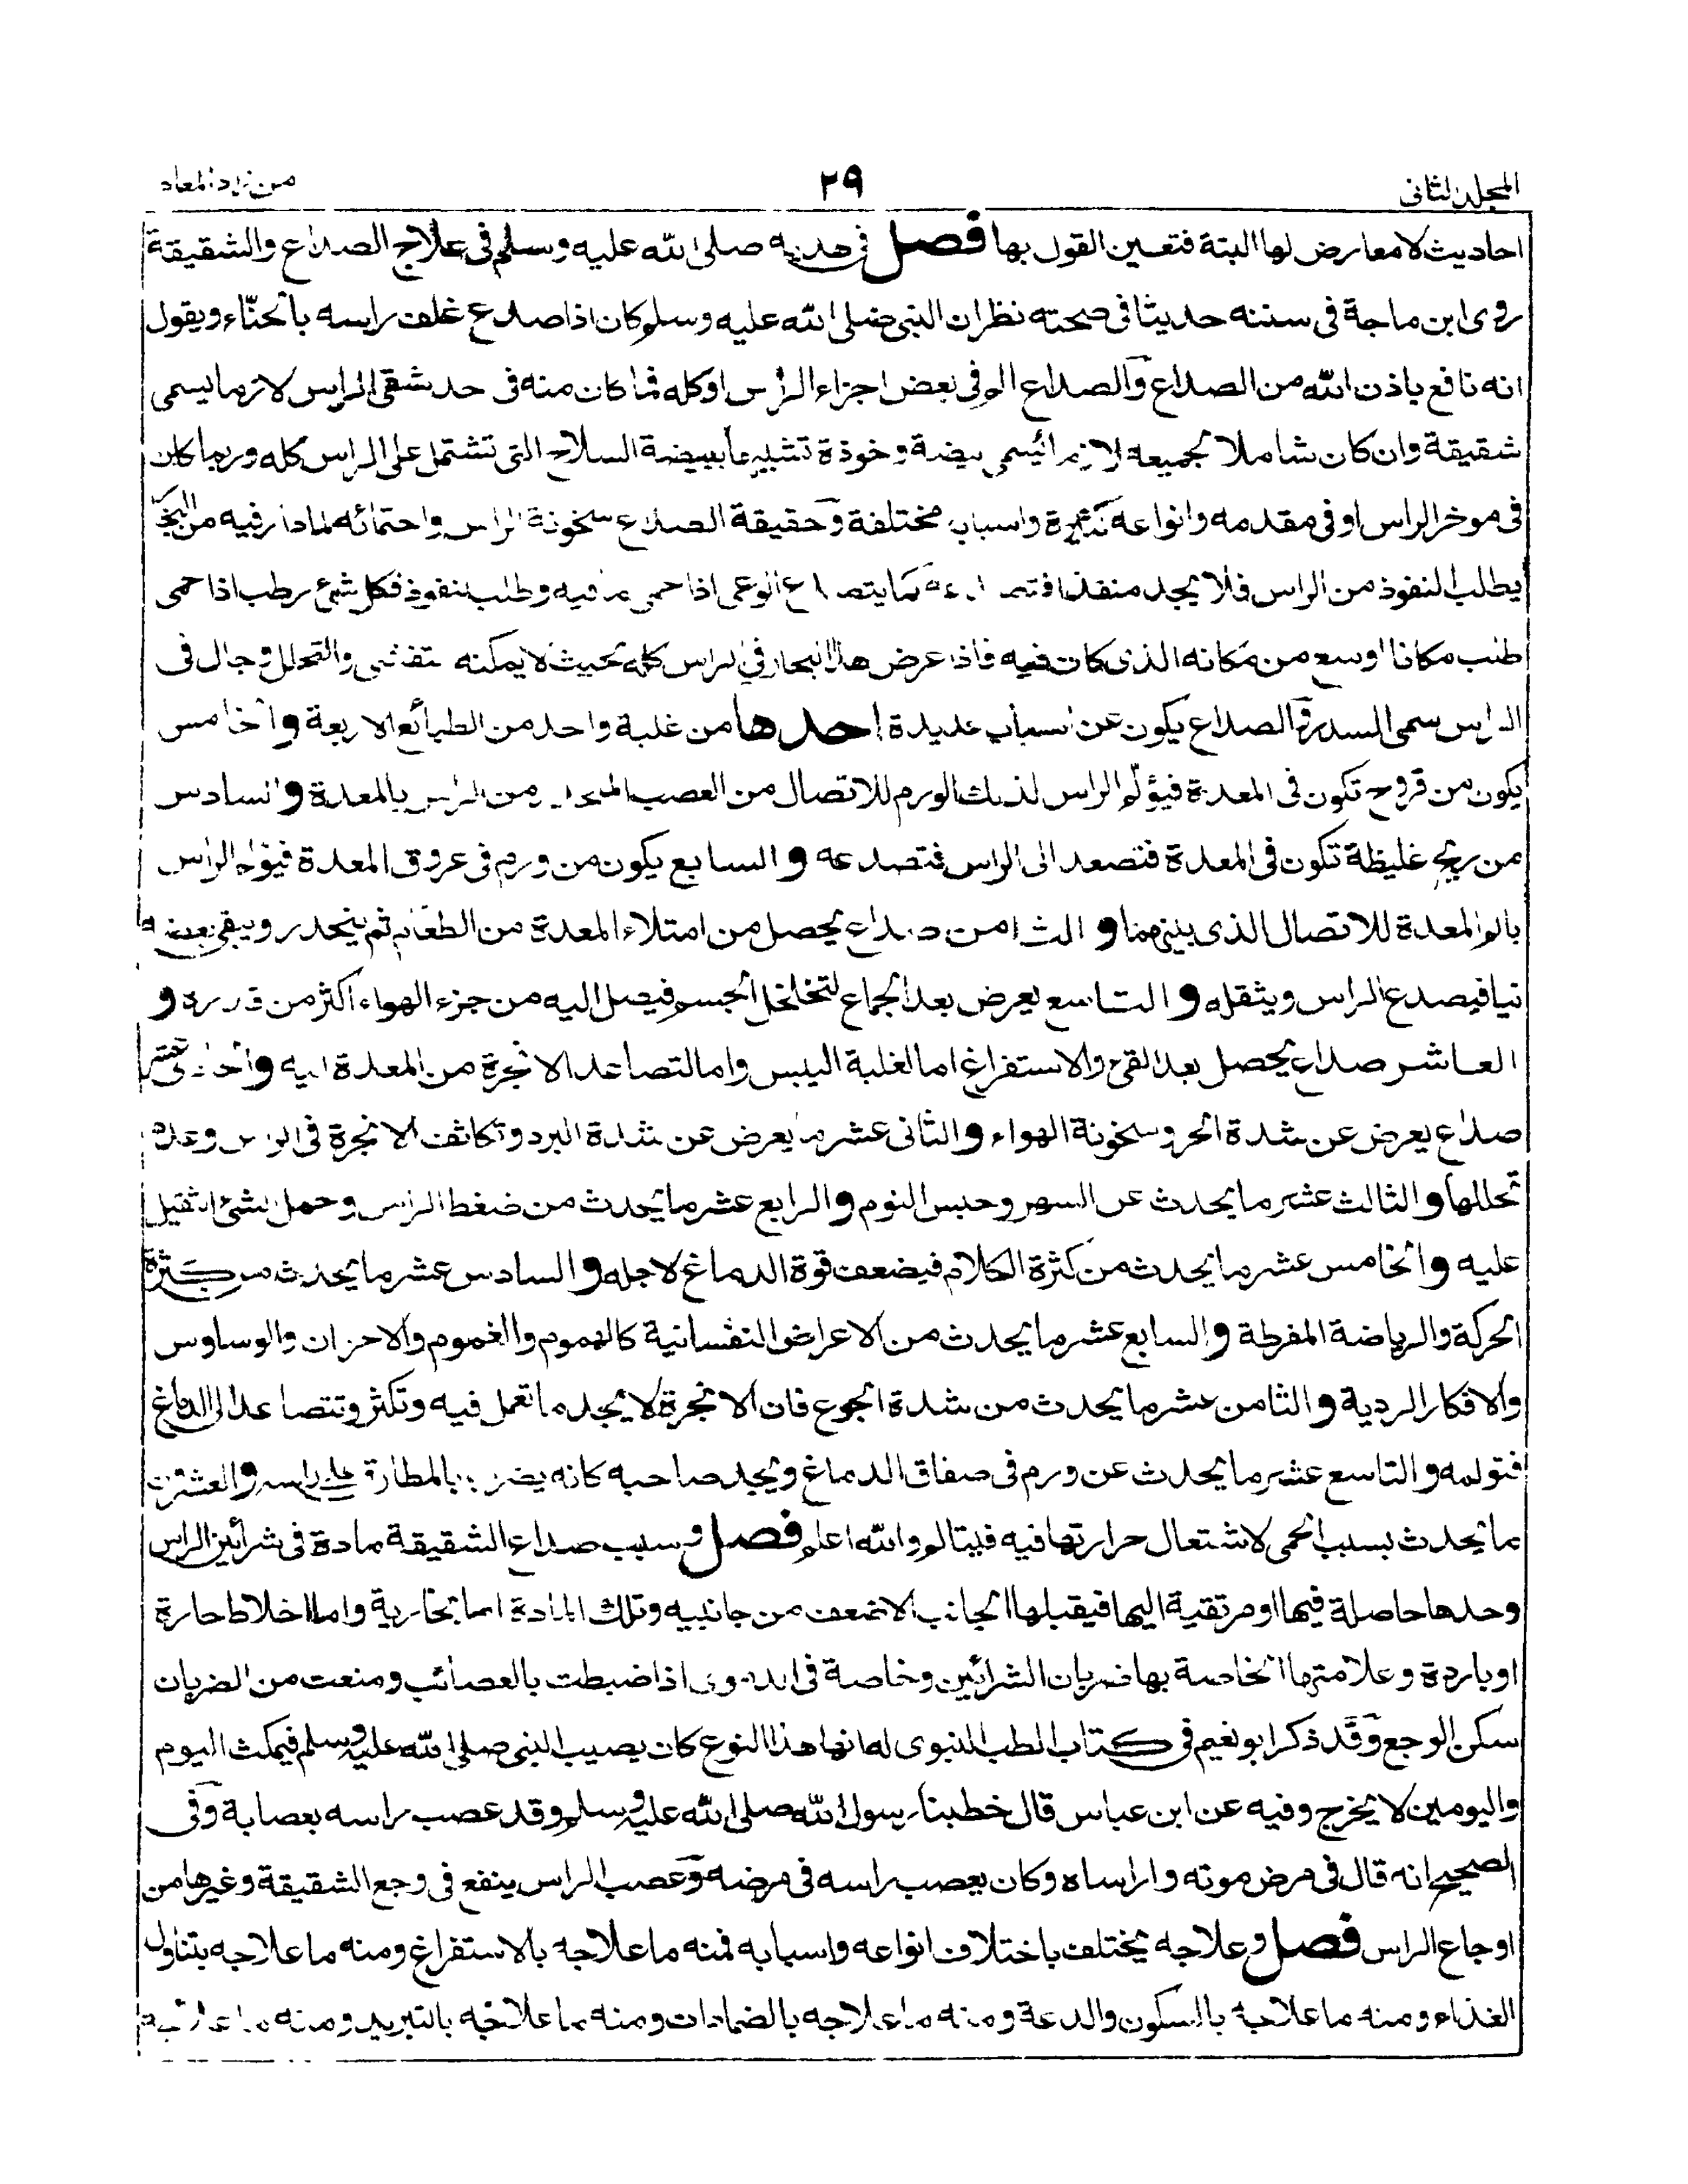 المجلد الثانى
٢٩
من زاد المعاد
احاديث لا معارض لها البتة فتعين القول بها فصل فى هديه صلى الله عليه وسلم فى علاج الصداع والشقيقة
روى ابن ماجة فى سننه حديثا فى صحته نظر ان النبى صلى الله عليه وسلم كان اذا صدع غلف راسه بالحنّاء ويقول
انه نافع باذن الله من الصداع والصداع الم فى بعض اجزاء الراس او كله فما كان منه فى احد شقى الراس لازما يسمى
شقيقة وان كان شاملا لجميعه لازما يسمى بيضة وخوذة تشبيها ببيضة السلاح التى تشتمل على الراس كله وربما كان
فى موخر الراس او فى مقدمه وانواعه كثيرة واسبابه مختلفة وحقيقة الصداع سخونة الراس واحتمائه لما دار فيه من البخار
يطلب النفوذ من الراس فلا يجد منفذا كما الوعى اذا حمى ما فيه وطلب النفوذ فكل شئ رطب اذا حمى
طلب مكانا اوسع من مكانه الذى كان فيه فاذا عرض هذا البخار فى الراس كله بحيث لا يمكنه التفشى والتحلل وجال فى
الراس سمى السدر والصداع يكون عن اسباب عديدة احدها من غلبة واحد من الطبائع الاربعة والخامس
يكون من قروح تكون فى المعدة فيؤلم الراس لذلك الورم للاتصال من العصب المنحدر من الراس بالمعدة والسادس
من ريح غليظة تكون فى المعدة فتصعد الى الراس فتصدعه والسابع يكون من ورم فى عروق المعدة فيؤلم الراس
بالم المعدة للاتصال الذى بينهما والثامن صداع يحصل من امتلاء المعدة من الطعام ثم ينحدر ويبقى بعضه
نيا فيصدع الراس ويثقله والتاسع يعرض بعد الجماع لتخلخل الجسم فيصل اليه من جزء الهواء اكثر من قدره و
العاشر صداع يحصل بعد القئ والاستفراغ اما لغلبة اليبس واما لتصاعد الابخرة من المعدة اليه والحادى عشر
صداع يعرض عن شدة الحر وسخونة الهواء والثانى عشر ما يعرض عن شدة البرد وتكاثف الابخرة فى الراس وعدم
تحللها والثالث عشر ما يحدث عن السهر وحبس النوم والرابع عشر ما يحدث من ضغط الراس وحمل الشئ الثقيل
عليه والخامس عشر ما يحدث من كثرة الكلام فيضعف قوة الدماغ لاجله والسادس عشر ما يحدث من كثرة
الحركة والرياضة المفرطة والسابع عشر ما يحدث من الاعراض النفسانية كالهموم والغموم والاحزان والوساوس
والافكار الردية والثامن عشر ما يحدث من شدة الجوع فان الابخرة لا يجد ما تعمل فيه وتكثر وتتصاعد الى الدماغ
فتولمه والتاسع عشر ما يحدث عن ورم فى صفاق الدماغ ويجد صاحبه كانه يضرب بالمطارق على راسه والعشرون
ما يحدث بسبب الحمى لاشتعال حرارتها فيه فيتالم والله اعلم فصل وسبب صداع الشقيقة مادة فى شرائين الراس
وحدها حاصلة فيها او مرتقية اليها فيقبلها الجانب الاضعف من جانبيه وتلك المادة اما بخارية واما اخلاط حارة
او باردة وعلامتها الخاصة بها ضربان الشرائين وخاصة فى الدموى اذا ضبطت بالعصائب ومنعت من الضربان
سكن الوجع وقد ذكر ابو نعيم فى كتاب الطب النبوى له انها هذا النوع كان يصيب النبى صلى الله عليه وسلم فيمكث اليوم
واليومين لا يخرج وفيه عن ابن عباس قال خطبنا رسول الله صلى الله عليه وسلم وقد عصب راسه بعصابة وفى
الصحيح انه قال فى مرض موته واراساه وكان يعصب راسه فى مرضه وعصب الراس ينفع فى وجع الشقيقة وغيرها من
اوجاع الراس فصل وعلاجه يختلف باختلاف انواعه واسبابه فمنه ما علاجه بالاستفراغ ومنه ما علاجه بتناول
الغذاء ومنه ما علاجه بالسكون والدعة ومنه ما علاجه بالضمادات ومنه ما علاجه بالتبريد ومنه ما علاجه